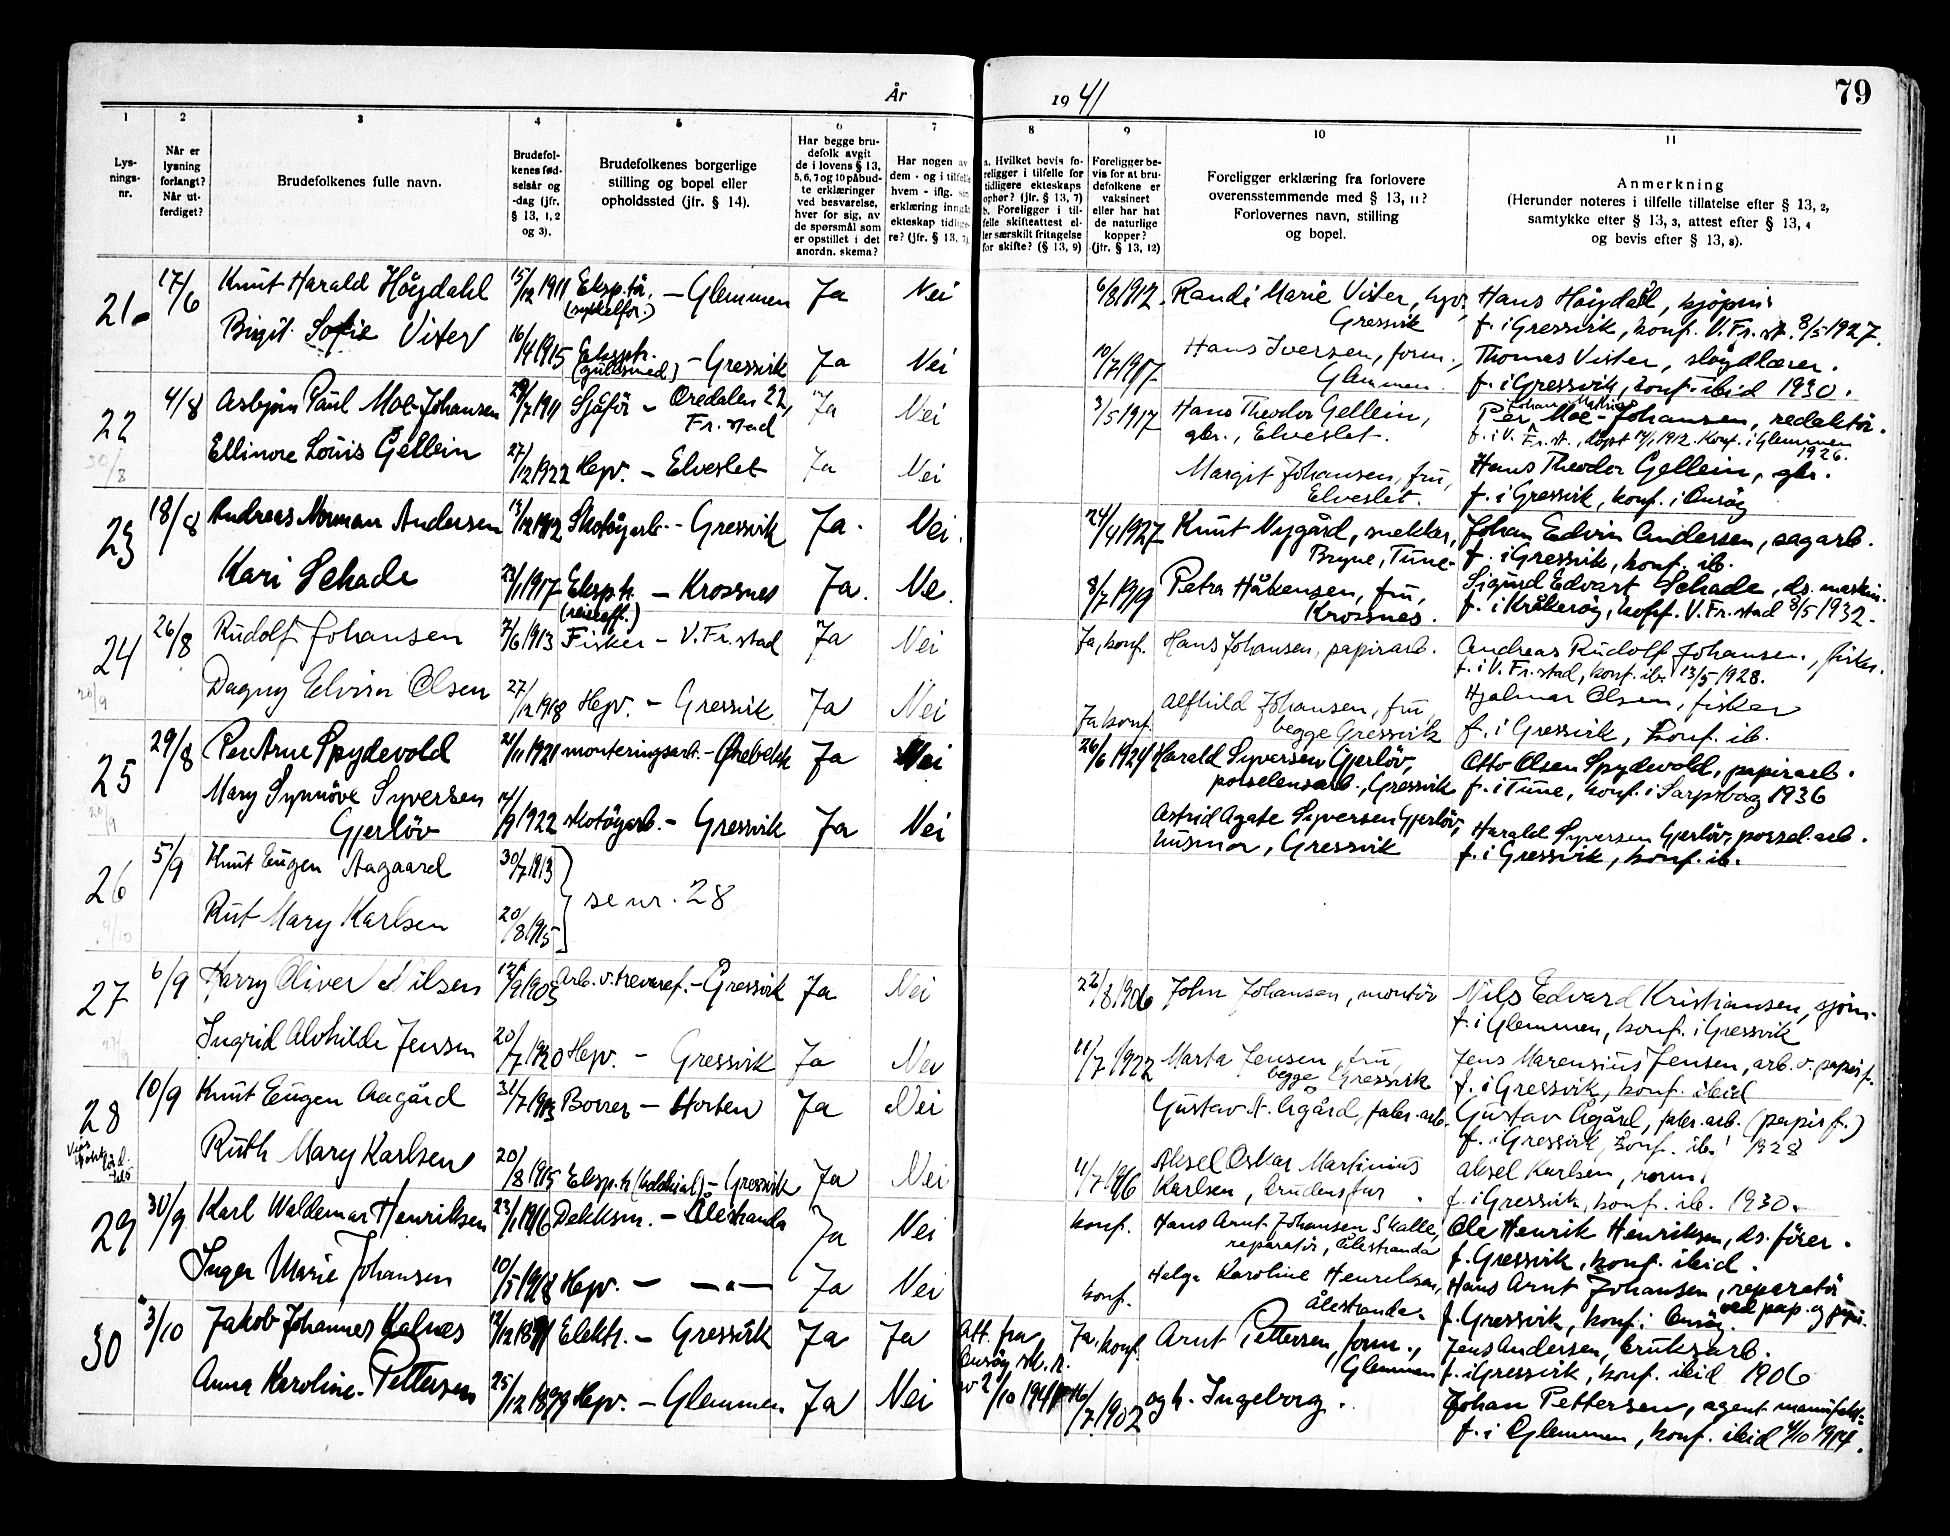 År 1941
79
1
2
3
4
5
6
7
8
9
10
11
Lysningsnr.
Når er lysning forlangt? Når utferdiget?
Brudefolkenes fulle navn.
Brudefolkenes fødselsår og -dag (jfr. § 13, 1, 2 og 3).
Brudefolkenes borgerlige stilling og bopel eller opholdssted (jfr. § 14).
Har begge brudefolk avgit de i lovens § 13, 5, 6, 7 og 10 påbudte erklæringer ved besvarelse, hver for sig, av de spørsmål som er opstillet i det anordn. skema?
Har nogen av dem - og i tilfelle hvem - iflg. sin erklæring inngått ekteskap tidligere? (jfr. § 13, 7).
a. Hvilket bevis foreligger i tilfelle for tidligere ekteskaps ophør? (jfr. § 13, 7) b. Foreligger i tilfelle skifteattest eller særskilt fritagelse for skifte? (§ 13, 9)
Foreligger bevis for at brudefolkene er vaksinert eller har hat de naturlige kopper? (jfr. § 13, 12)
Foreligger erklæring fra forlovere overensstemmende med § 13, 11? Forlovernes navn, stilling og bopel.
Anmerkning (Herunder noteres i tilfelle tillatelse efter § 13, 2, samtykke efter § 13, 3, attest efter § 13, 4 og bevis efter § 13, 8).
21. 17/6 Knut Harald Høydahl 15/12 1911 Eksp.tå. (sykkelfor.) - Glemmen Ja Nei 6/8 1912. Randi Marie Vister, hpv, Gressvik Hans Høydahl, kjøpm.
f. i Gressvik, konf. V. Fr. st. 8/5 1927.
Birgit Sofie Vister 16/4 1915 Eksptr. (gullsmed) - Gressvik Ja Nei 10/7 1917 Hans Iversen, form., Glemmen. Thomas Vister, sløydlærer.
f. i Gressvik, konf. ibid 1930.
22 4/8 Asbjørn Paul Moe-Johansen 29/7 1911 Sjåfør - Oredalen 22, Fr.stad Ja Nei 3/5 1917 Hans Theodor Gellein, gbr., Elveslet. Per Johan Mathias Moe-Johansen, redaktør.
f. i V. Fr. st., døpt 14/1 1912. Konf. i Glemmen 1926.
30/8 Ellinore Louis Gellein 27/12 1922 Hpv. - Elveslet Ja Nei Margit Johansen, fru, Elveslet. Hans Theodor Gellein, gbr.
f. i Gressvik, konf. i Onsøy
23 18/8 Andreas Norman Andersen 19/12 1912 Skotøyarb. - Gressvik Ja. Nei. 24/4 1927 Knut Nygård, snekker, Bryne, Tune. Johan Edvin Andersen, sagarb.
f. i Gressvik, konf. ib.
Kari Schade 23/1 1917 Eksp.tr. (reiseeff.) - Krossnes Ja. Ne. 8/7 1919 Petra Håkensen, fru, Krossnes. Sigurd Edvart Schade, ds. maskin.
f. i Kråkerøy, konf. V. Fr. stad 8/5 1932.
24 26/8 Rudolf Johansen 7/6 1913 Fisker - V. Fr. stad Ja Nei Ja, konf. Hans Johansen, papirarb. Andreas Rudolf Johansen, fisker.
f. i V. Fr. stad, konf. ib. 13/5 1928.
20/9 Dagny Elvira Olsen 27/12 1918 Hpv. - Gressvik Ja Nei Ja konf. Alfhild Johansen, fru begge Gressvik Hjalmar Olsen, fisker
f. i Gressvik, konf. ib.
25 29/8 Per Arne Spydevold 21/11 1921 monteringsarb. - Ørebekk Ja Nei 26/6 1924 Harald Syversen Gjerløv, porselensarb., Gressvik Otto Olsen Spydevold, papirarb.
f. i Tune, konf. i Sarpsborg 1936
20/9 Mary Synnøve Syversen Gjerløv 1922 skotøyarb. - Gressvik Ja Nei Astrid Agate Syversen Gjerløv, husmor, Gressvik Harald Syversen Gjerløv, porsel. arb.
f. i Gressvik, konf. ib.
26 5/9 Knut Eugen Aagaard 30/7 1913
se nr. 28
9/10 Rut Mary Karlsen 20/8 1915
27 6/9 Harry Oliver Nilsen 12/9 1905 Arb. v. trevaref. - Gressvik Ja Nei 22/8 1906 John Johansen, montør Nils Edvard Kristiansen, sjøm.
f. i Glemmen, konf. i Gressvik
27/9 Ingrid Alvhilde Jensen 20/7 1920 Hpv. - Gressvik Ja Nei 11/7 1922 Marta Jensen, fru, begge Gressvik Jens Marensius Jensen, arb. v. papirf.
f. i Gressvik, konf. ibid
28 10/9 Knut Eugen Aagård 31/7 1913 Borrer - Horten Ja Nei Gustav A. Ågård, fabr. arb. Gustav Ågård, fabr. arb. (papirf.)
f. i Gressvik, konf. ib. 1928
Ruth Mary Karlsen 20/8 1915 Eksp.tr (kolonial) - Gressvik Ja Nei 11/7 1916 Aksel Oskar Martinius Karlsen, brudens far. Aksel Karlsen, rørm.
f. i Gressvik, konf. ib. 1930.
29 30/9 Karl Waldemar Henriksen 23/1 1916 Dekksm. - Ålestranda Ja Nei konf. Hans Arnt Johansen Skalle, reparatør, Ålestranda Ole Henrik Henriksen, ds. fører.
f. Gressvik, konf. ibid.
Inger Marie Johansen 10/5 1918 Hpv. - - " - Ja Nei konf. Helga Karoline Henriksen, Ålestranda. Hans Arnt Johansen, reparatør ved pap. og
f. Gressvik, konf. i Onsøy.
30 3/10 Jakob Johannes Kalnes Elektr. - Gressvik Ja Ja Att. fra Onsøy sk. r. av 2/10 1941 Ja, konf. Arnt Pettersen, form., Glemmen Jens Andersen, bruksarb.
f. i Gressvik, konf. ibid 1906
Anna Karoline Pettersen 25/12 1899 Hpv. - Glemmen Ja Nei 16/7 1902 og h. Ingeborg. Johan Pettersen, agent manufakt.
f. i Glemmen, konf. ibid 4/10 1914.